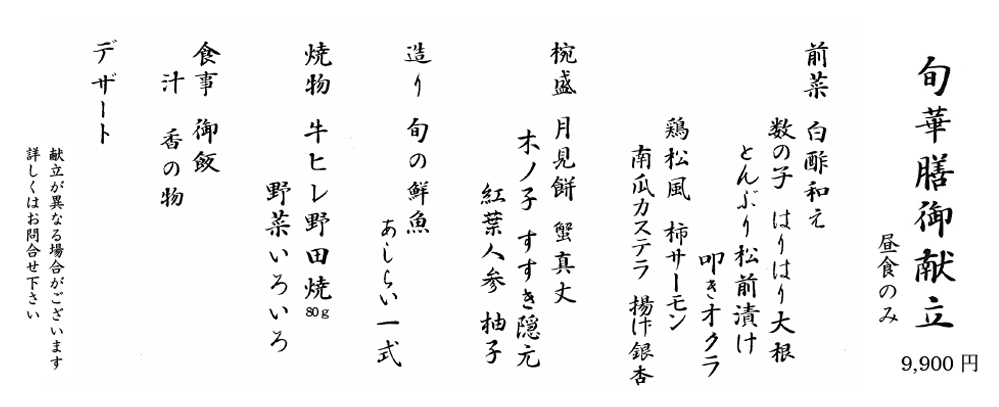 旬華膳御献立
昼食のみ
9,900 円
前菜 白酢和え
数の子 はりはり大根
とんぶり松前漬け
叩きオクラ
鶏松風 柿サーモン
南瓜カステラ 揚げ銀杏
椀盛 月見餅 蟹真丈
木ノ子 すすき隠元
紅葉人参 柚子
造り 旬の鮮魚
あしらい一式
焼物 牛ヒレ野田焼 80g
野菜いろいろ
食事 御飯
汁 香の物
デザート
献立が異なる場合がございます
詳しくはお問合せ下さい